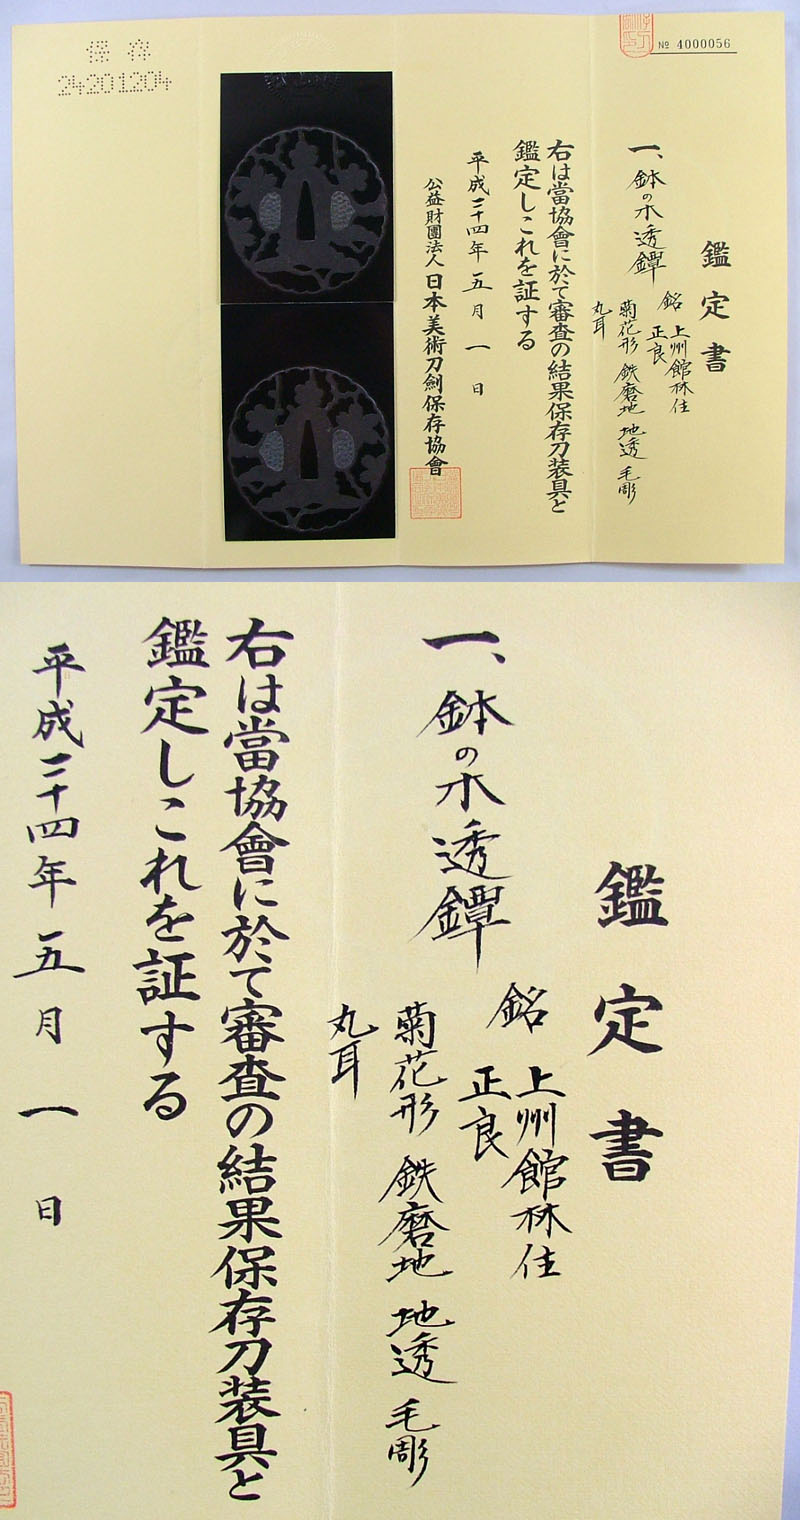 № 4000056
鑑定書
一、鉢の木透鐔
銘 上州館林住
正良
菊花形 鉄磨地 地透 毛彫
丸耳
右は當協會に於て審査の結果保存刀装具と
鑑定しこれを証する
平成二十四年 五月 一日
公益財團法人 日本美術刀劍保存協會
保存
24201204
鑑定書
一、鉢の木透鐔
銘 上州館林住
正良
菊花形 鉄磨地 地透 毛彫
丸耳
右は當協會に於て審査の結果保存刀装具と
鑑定しこれを証する
平成二十四年 五月 一日